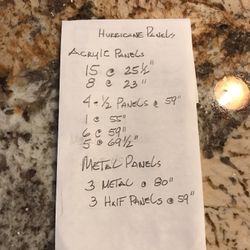 Hurricane Panels
Acrylic Panels
15 @ 25½"
8 @ 23"
4 - ½ Panels @ 59"
1 @ 55"
6 @ 59"
5 @ 69½"
Metal Panels
3 Metal @ 80"
3 Half Panels @ 59"